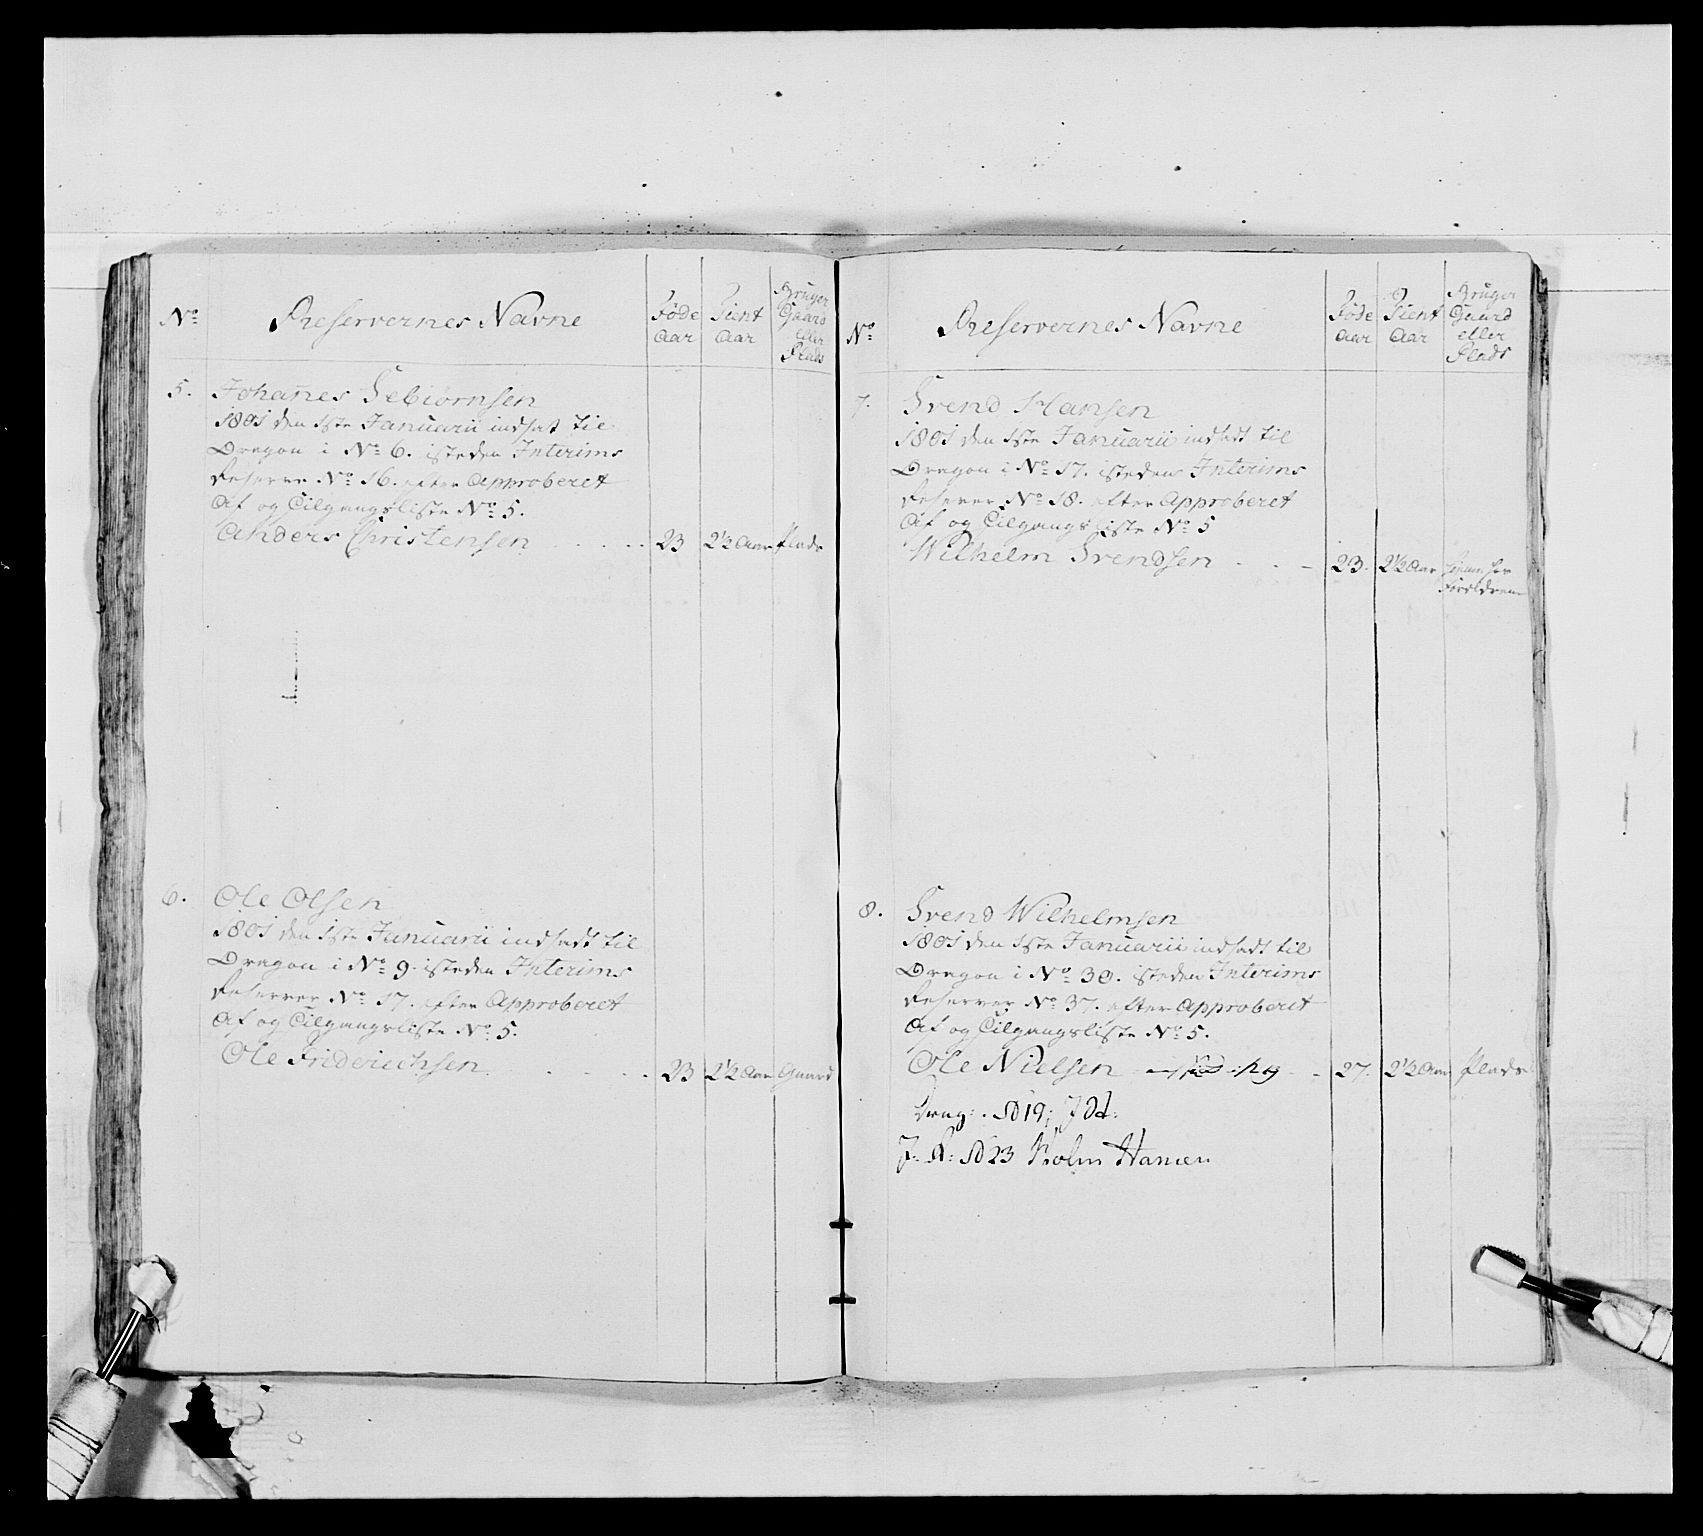 No Reservernes Navne Føde Aar Tient Aar Bruger Gaard eller Plads
5. Johannes Sebiørnsen
1801 den 1ste Januarii indsat til
Dragon i No 6. isteden Interims
Reserve No 16. efter Approberet
Af og Tilgangsliste No 5.
Anders Christensen 23 2 1/2 Aar Plads
6. Ole Olsen
1801 den 1ste Januarii indsadt til
Dragon i No 9. isteden Interims
Reserver No 17. efter Approberet
Af og Tilgangsliste No 5.
Ole Friderichsen 23 2 1/2 Aar Gaard
No Reservernes Navne Føde Aar Tient Aar Bruger Gaard eller Plads
7. Svend Hansen
1801 den 1ste Januarii indsadt til
Dragon i No 17. isteden Interims
Reserver No 18. efter Approberet
Af og Tilgangsliste No 5
Wilhelm Svendsen 23. 2 1/2 Aar hiemme hos
Forældrene
8. Svend Wilhelmsen
1801 den 1ste Januarii indsadt til
Dragon i No 30. isteden Interims
Reserver No 37. efter Approberet
Af og Tilgangsliste No 5.
Ole Nielsen 27. 2 1/2 Aar Plads
Drag: No 19:
J: R: No 23 Holm Hansen